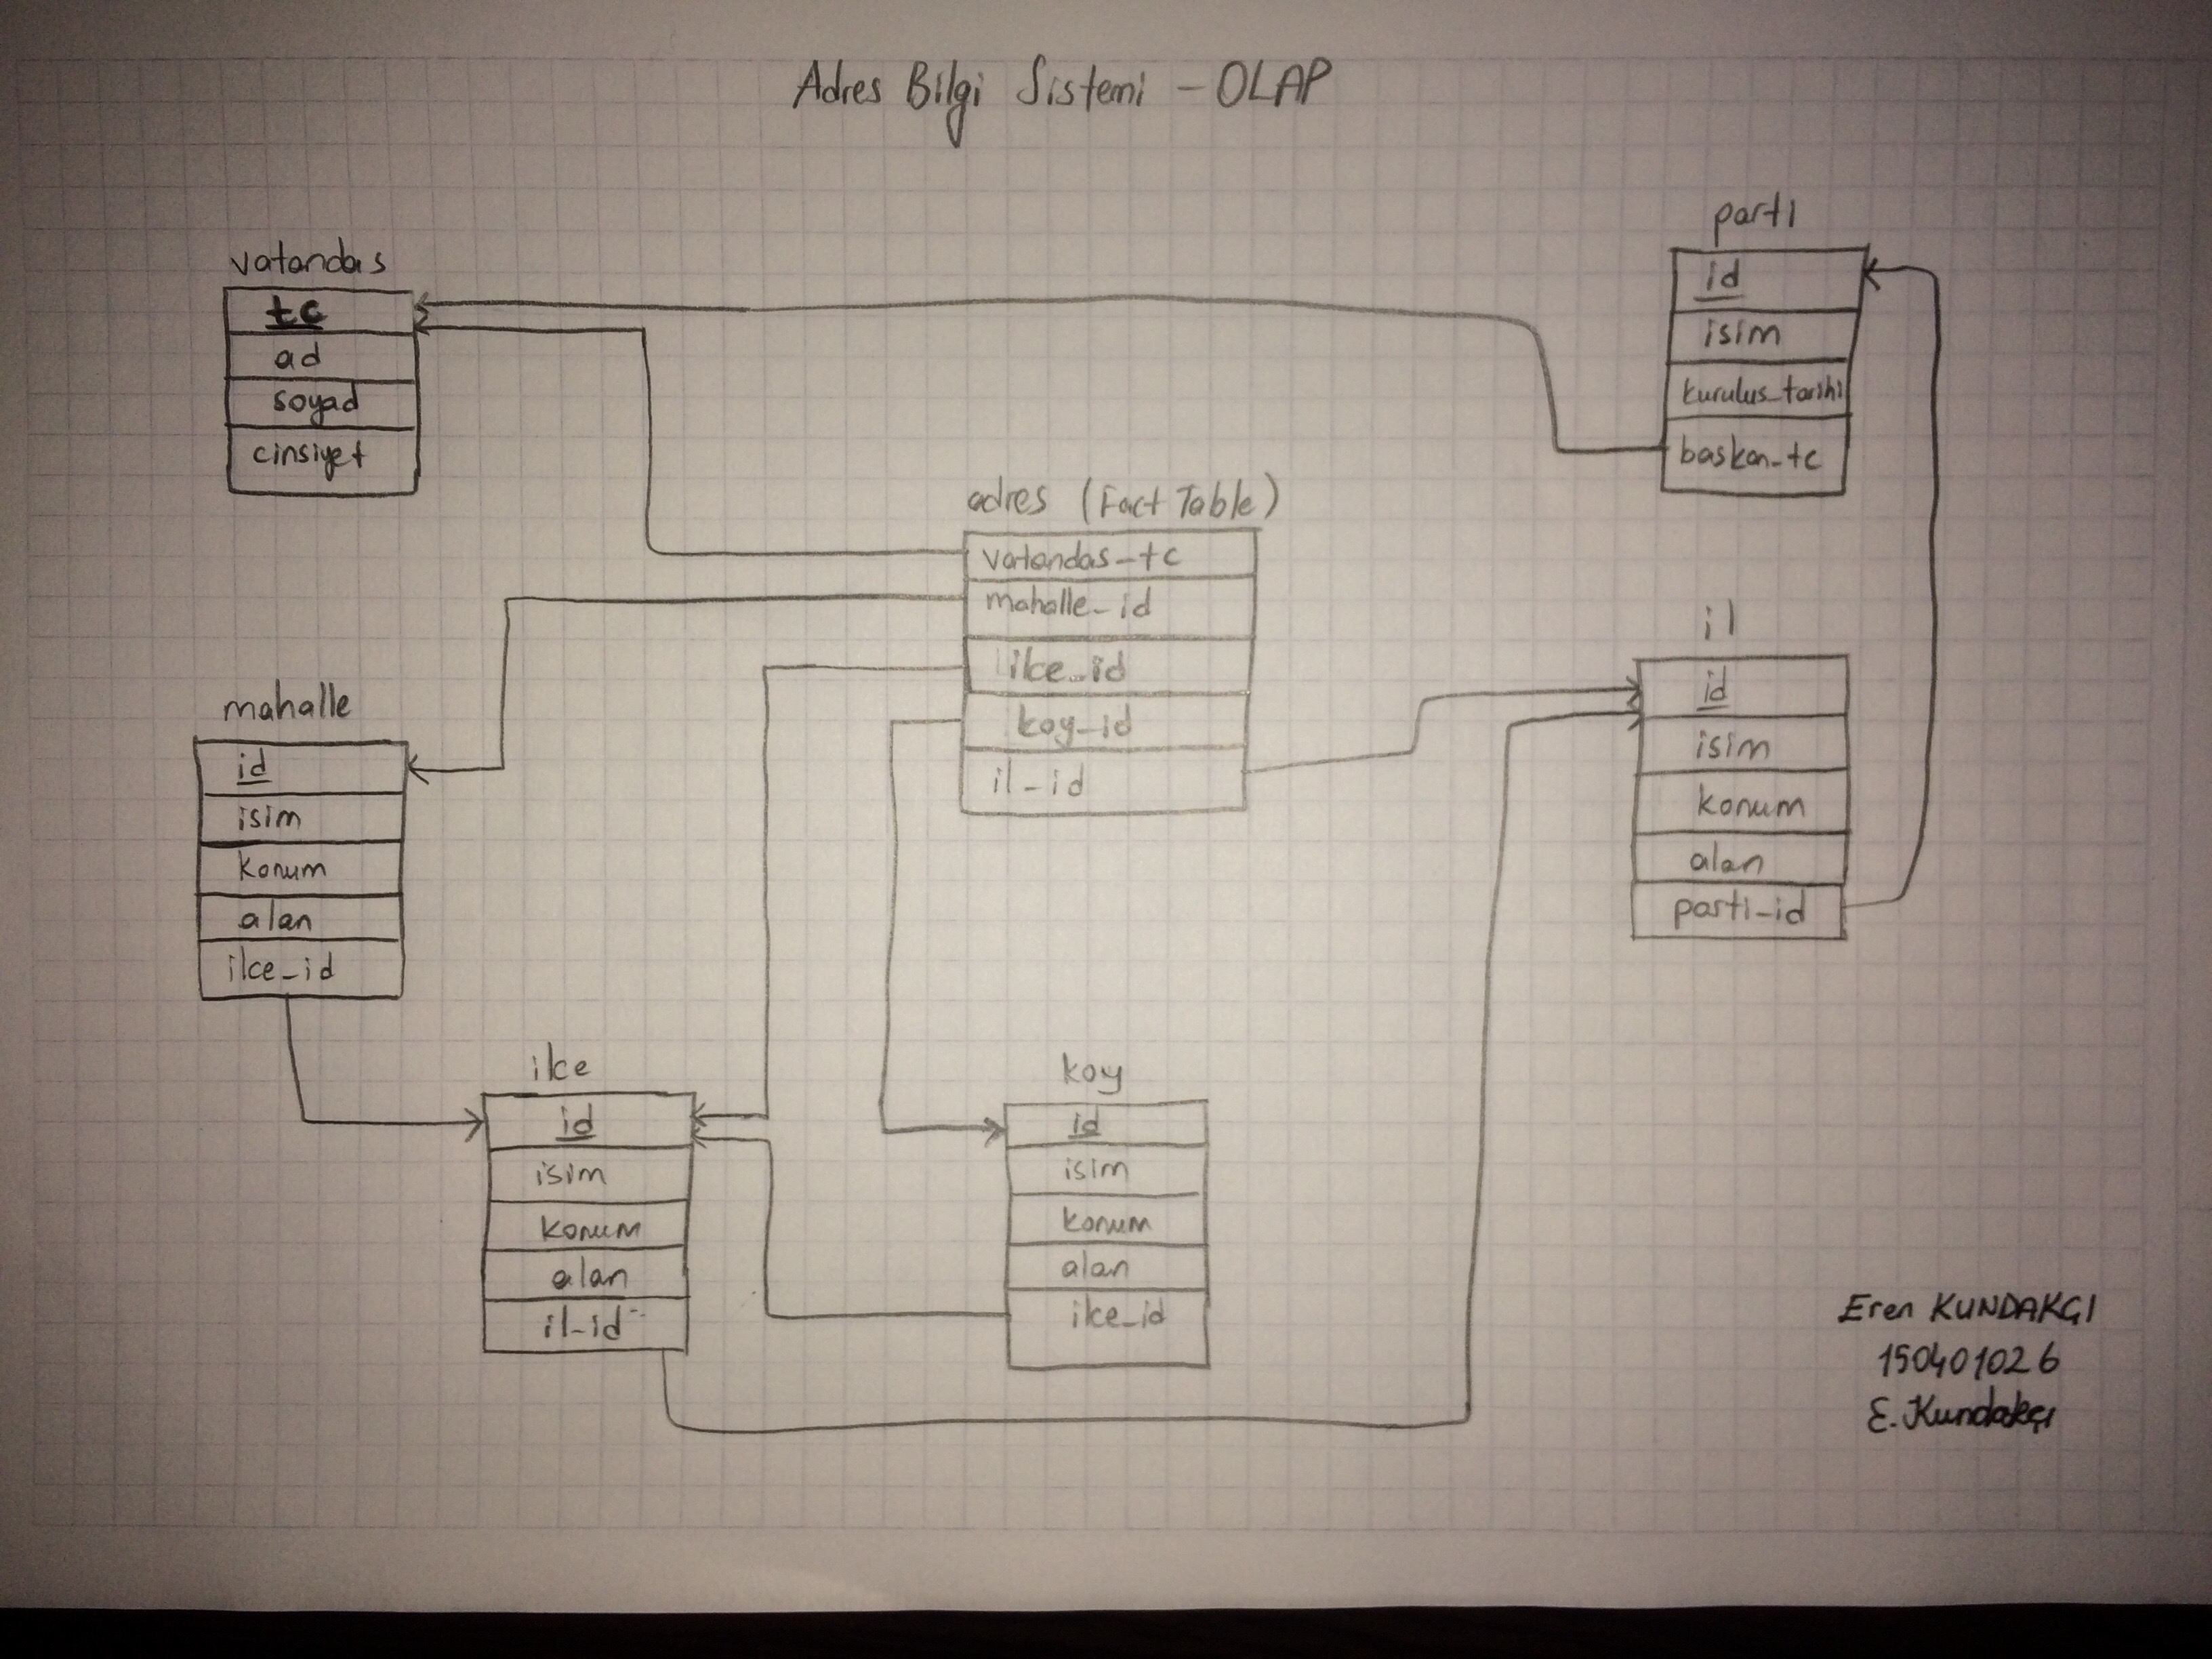 Adres Bilgi Sistemi - OLAP
vatandas
tc
ad
soyad
cinsiyet
parti
id
isim
kurulus_tarihi
baskan_tc
adres (Fact Table)
vatandas_tc
mahalle_id
ilce_id
koy_id
il_id
il
id
isim
konum
alan
parti_id
mahalle
id
isim
konum
alan
ilce_id
ilce
id
isim
konum
alan
il_id
koy
id
isim
konum
alan
ilce_id
Eren KUNDAKÇI
150401026
E. Kundakçı